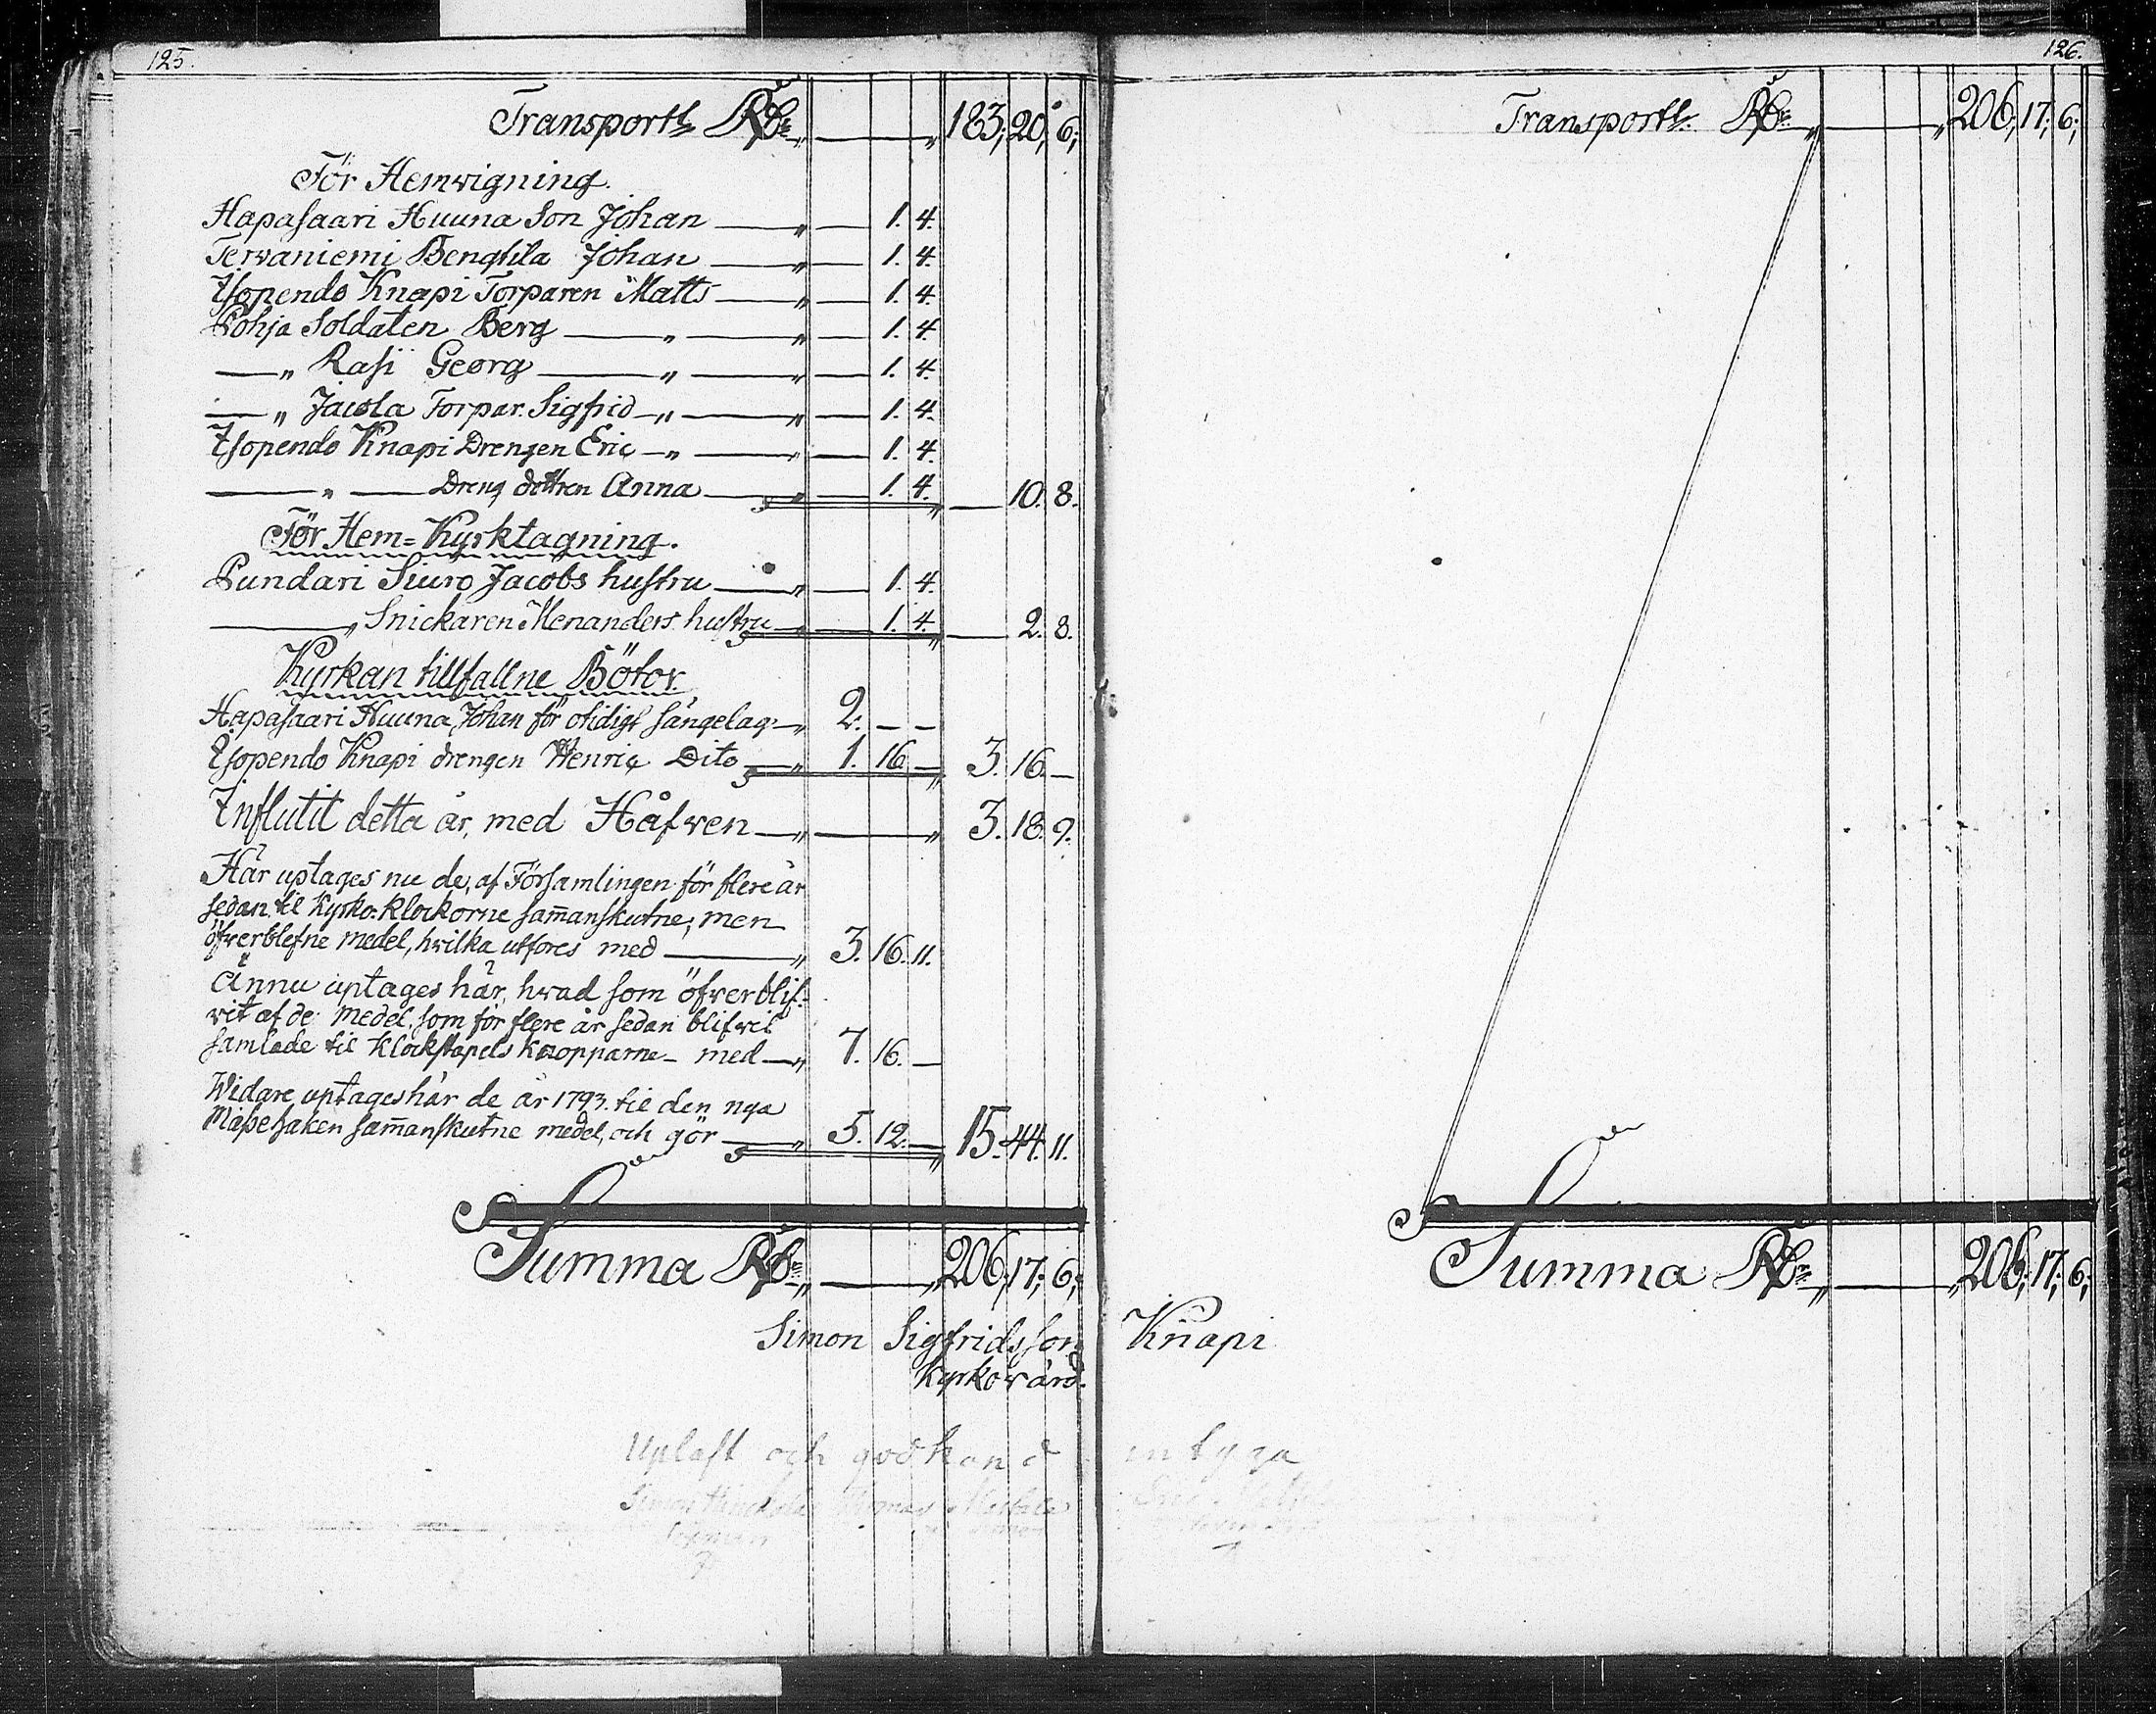 125.
Transport Rd 183; 20; 6;
För Hemwigning.
Hapasaari Huuna Son Johan 1. 4.
Terwaniemi Bengtila Johan 1. 4.
Ylöpendo Knapi Torparen Matts 1. 4.
Pohja Soldaten Berg 1. 4.
" Rasi Georg 1. 4.
" Jacola Torpar. Sigfrid 1. 4.
Knapi Drengen Eric 1. 4.
" Dreng dottren Anna 1. 4. 10. 8.
För Hem=Kyrktagning.
Pundari Siuro Jacobs hustru 1. 4.
" Snickaren Menanders hustru 1. 4. 2. 8.
Kyrkan tillfallne Böter.
Hapasaari Huuna Johan för otidigt sängelag: 2. — —
Knapi drengen Henric Dito 1. 16. — 3. 16. —
Influtit detta år, med Håfwen 3. 18. 9.
Här uptages nu de, af Församlingen för flere år
sedan til Kyrko-Klockorne sam̅anskutne, men
öfwerblefne medel, hwilka utföres med 3. 16. 11.
Ännu uptages här, hwad som öfwerblif-
wit af de medel, som för flere år sedan blifwit
samlade til Klockstapels Knopparne med 7. 16. —
Widare uptages här de år 1793. til den nya
Messehaken sam̅anskutne medel, och gör 5. 12. — 15. 44. 11.
Summa Rd 206; 17; 6;
Simon Sigfridsson Knapi
Kyrkowärd.
Upläst och godkand intyga
Simon Thomas
Sexman
126.
Transport Rd 206; 17; 6;
Summa Rd 206; 17; 6;